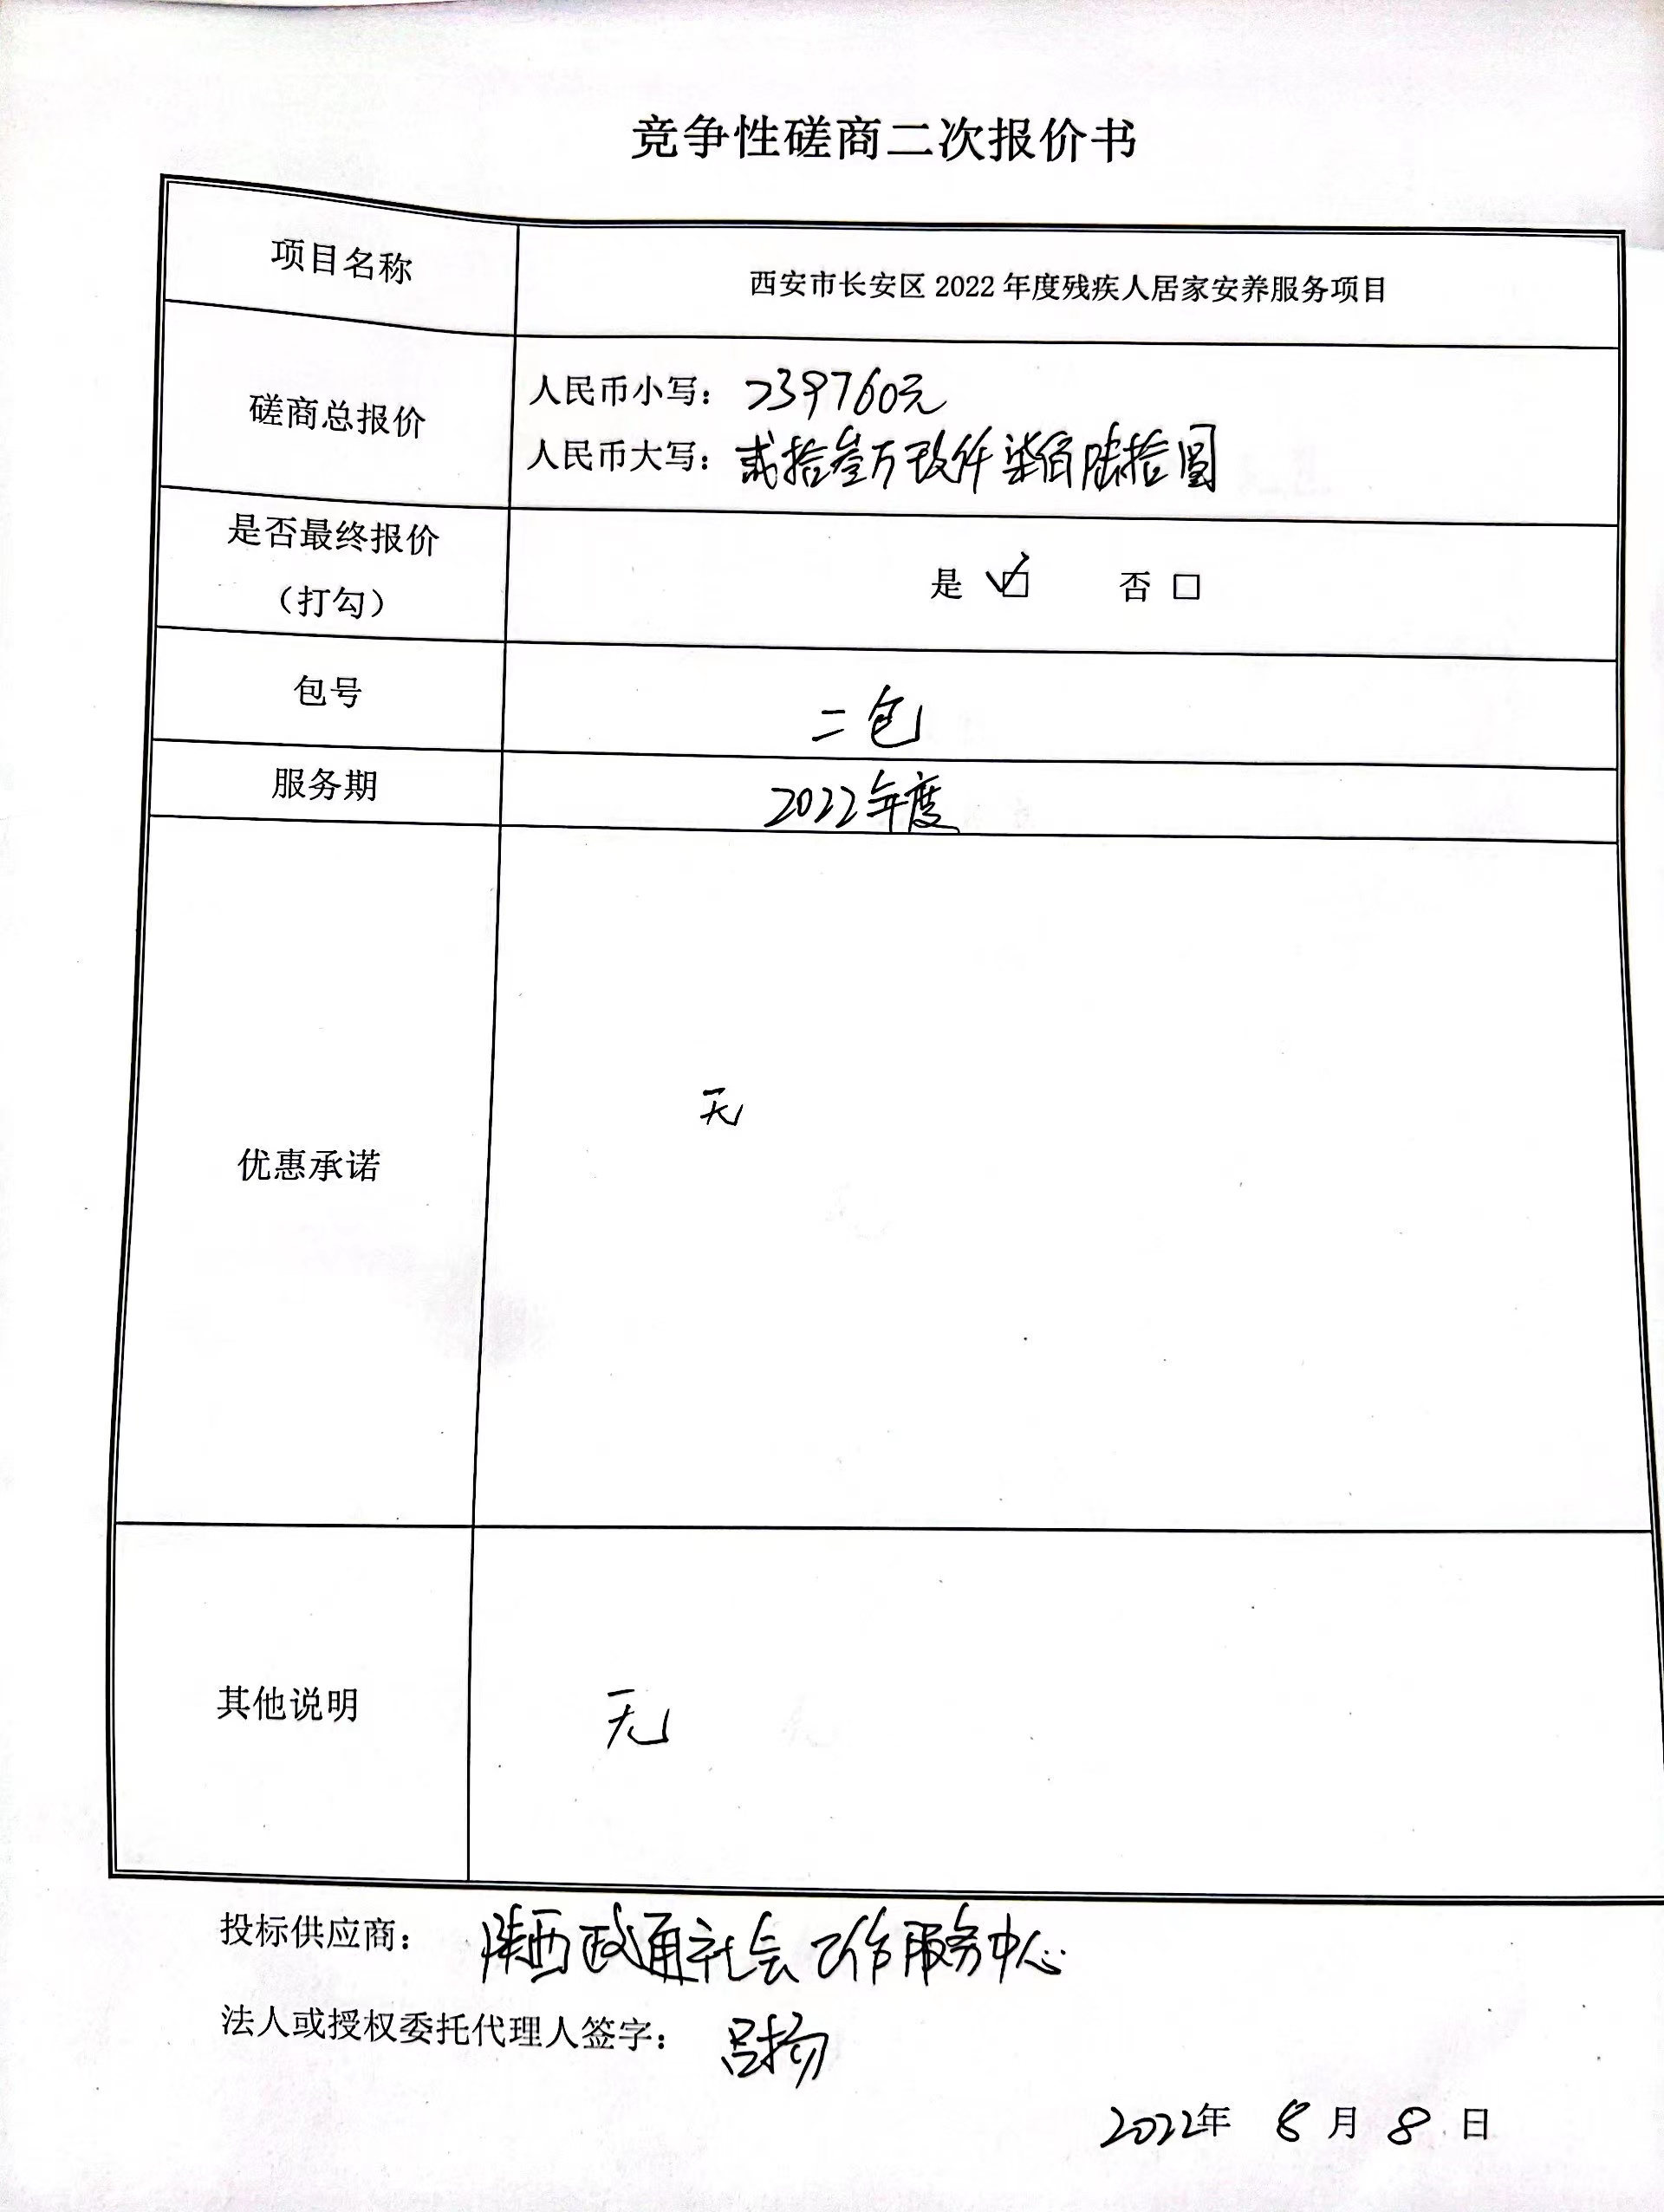 竞争性磋商二次报价书
项目名称
西安市长安区 2022 年度残疾人居家安养服务项目
磋商总报价
人民币小写：239760元
人民币大写：贰拾叁万玖仟柒佰陆拾圆
是否最终报价
（打勾）
是 ☑ 否 □
包号
二包
服务期
2022年度
优惠承诺
无
其他说明
无
投标供应商：陕西政通社会工作服务中心
法人或授权委托代理人签字：吕扬
2022年 8 月 8 日